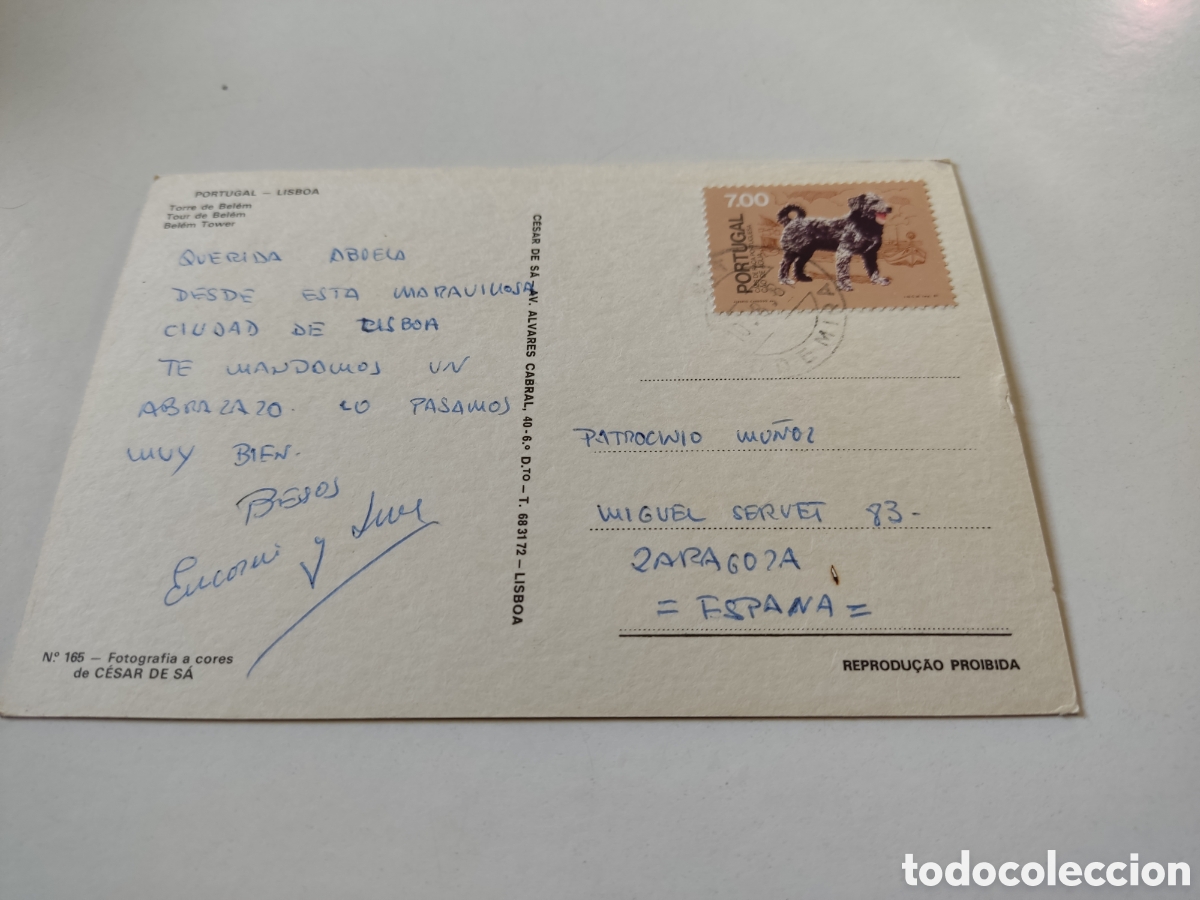 PORTUGAL — LISBOA
Torre de Belém
Tour de Belém
Belém Tower
QUERIDA ABUELA
DESDE ESTA MARAVILLOSA
CIUDAD DE LISBOA
TE MANDAMOS UN
ABRAZAZO. LO PASAMOS
MUY BIEN.
BESOS
Encarni y Luis
Nº 165 — Fotografia a cores
de CÉSAR DE SÁ
CÉSAR DE SÁ — AV. ALVARES CABRAL, 40-6.º D.TO — T. 683172 — LISBOA
7.00
PORTUGAL
PATROCINIO MUÑOZ
MIGUEL SERVET 83-
ZARAGOZA
= ESPAÑA =
REPRODUÇÃO PROIBIDA
todocoleccion